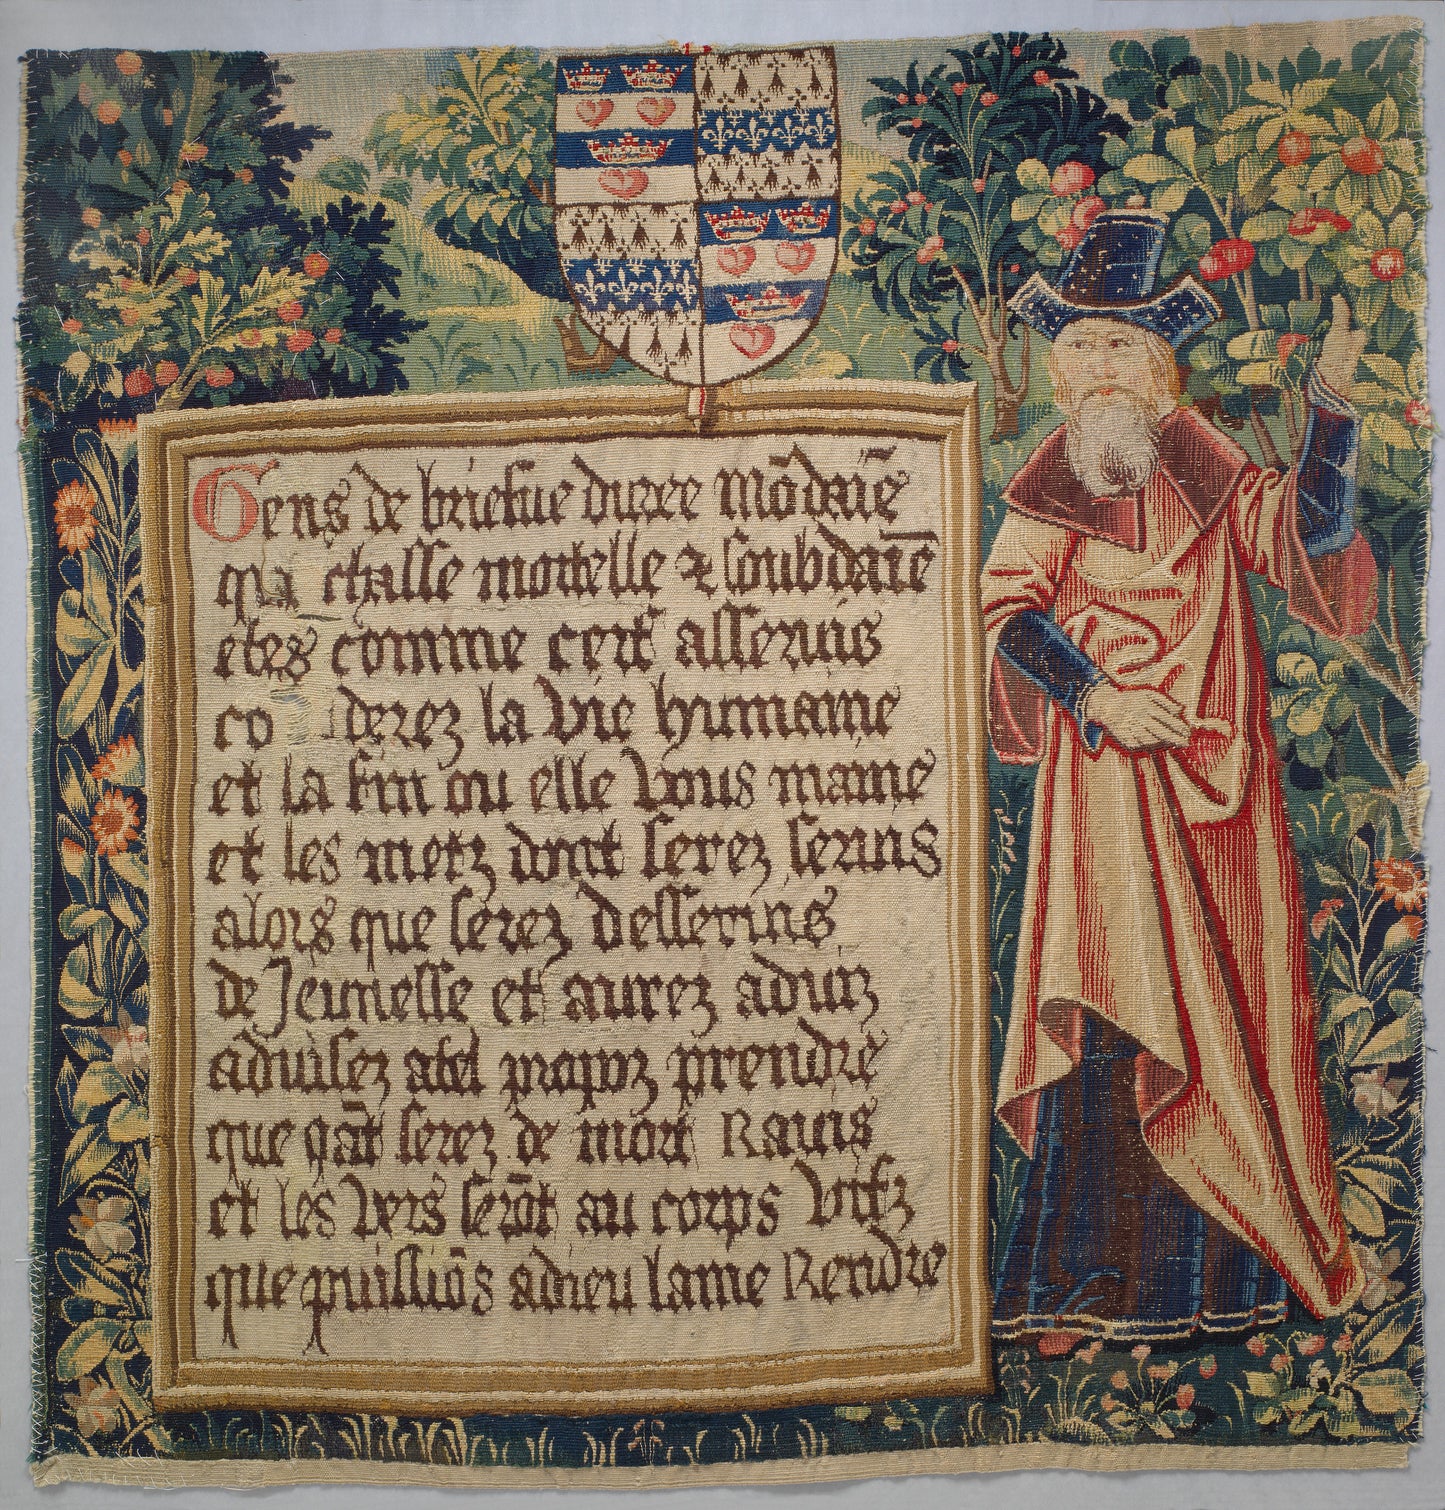 Gens de briefue duree mõdaīe
chasse mortelle & soubdaīe
estes comme cerf asseruis
derez la vie humaine
et la fin ou elle vous maine
et les metz dont serez seruis
alors que serez desseruis
de Jeunesse et aurez aduiz
aduisez a tel propoz prendre
que quãt serez de mort Rauis
et les vers serõt au corps vifz
que puissiõs a dieu lame Rendre